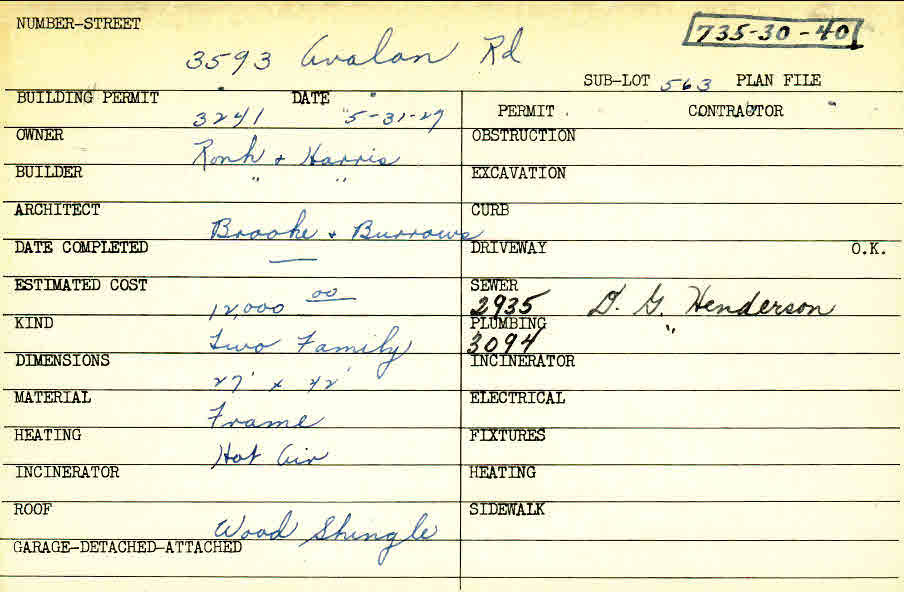 NUMBER-STREET
735-30-40
3593 Avalon Rd
SUB-LOT 563 PLAN FILE
BUILDING PERMIT 3241 DATE 5-31-27
PERMIT CONTRACTOR
OWNER Ronh + Harris
OBSTRUCTION
BUILDER " "
EXCAVATION
ARCHITECT Brooke + Burrows
CURB
DATE COMPLETED —
DRIVEWAY O.K.
ESTIMATED COST 12,000 00
SEWER 2935 D. G. Henderson
KIND Two Family
PLUMBING 3094 "
DIMENSIONS 27' x 42'
INCINERATOR
MATERIAL Frame
ELECTRICAL
HEATING Hot Air
FIXTURES
INCINERATOR
HEATING
ROOF Wood Shingle
SIDEWALK
GARAGE-DETACHED-ATTACHED